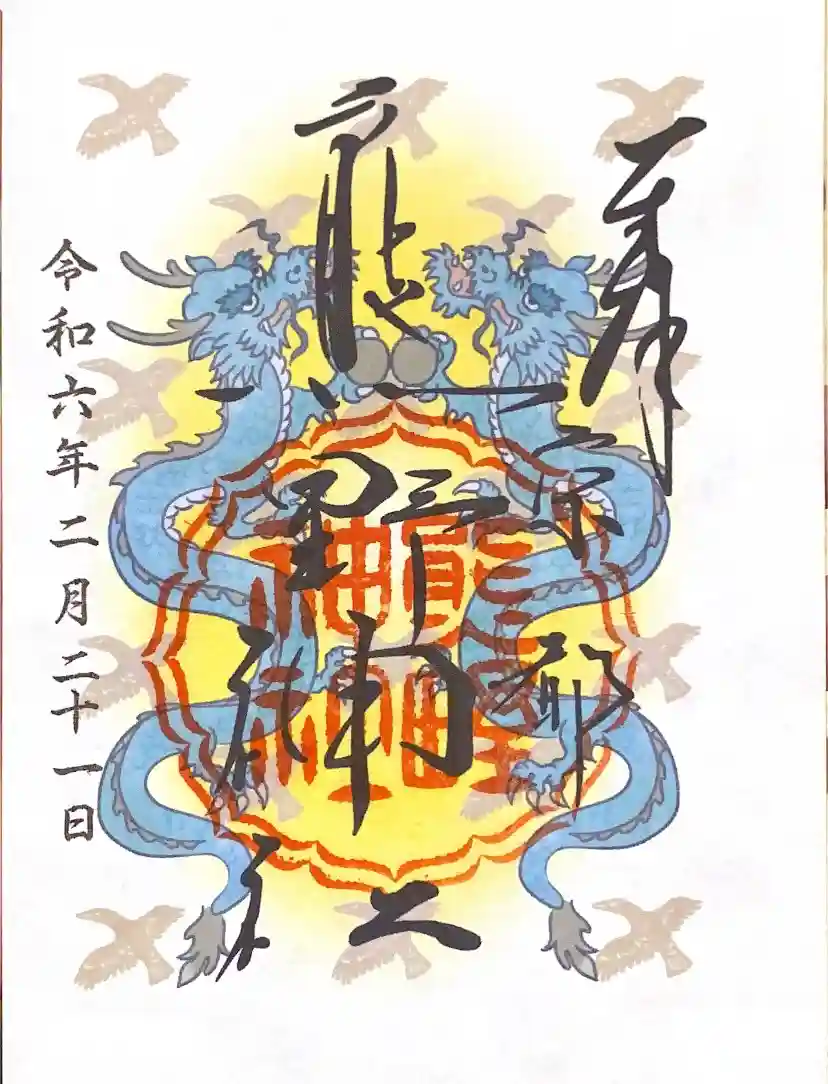 奉拝
京都
熊野神社
令和六年二月二十一日